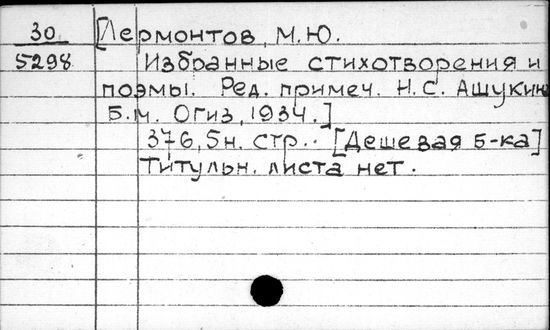 30 [Лермонтов, М.Ю.
5298 Избранные стихотворения и
поэмы. Ред. примеч. Н.С. Ашукин
Б.м. Огиз, 1934.]
376, 5н. стр.. [Дешевая б-ка]
Титульн. листа нет.